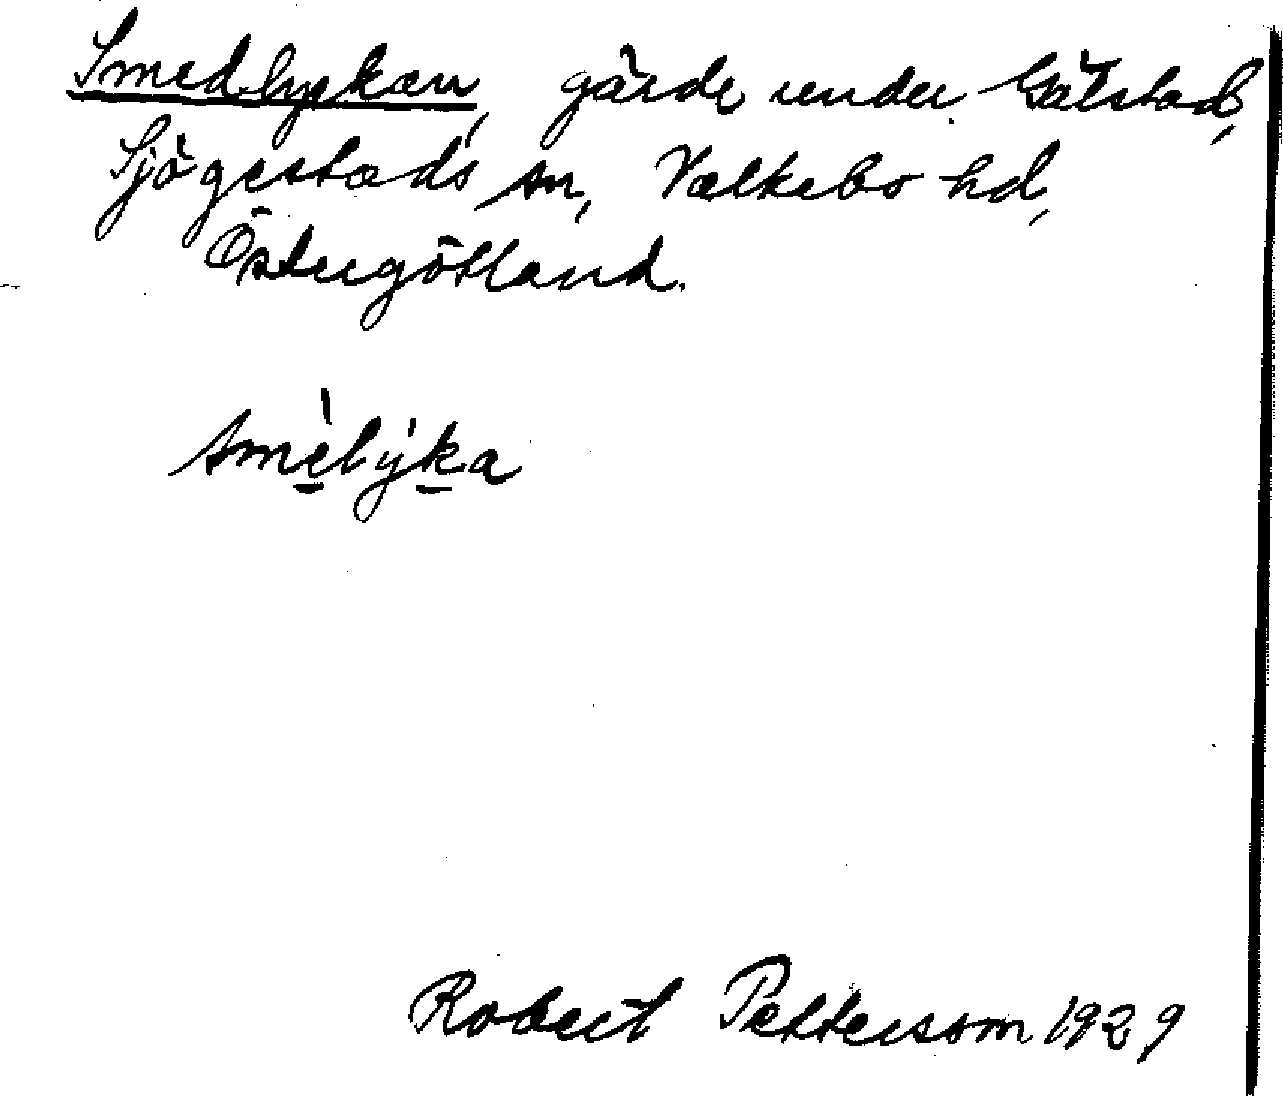 Smedlyckan, gärde under Gätstad,
Sjögestads sn, Valkebo hd,
Östergötland.
smèlýka
Robert Pettersson 1929